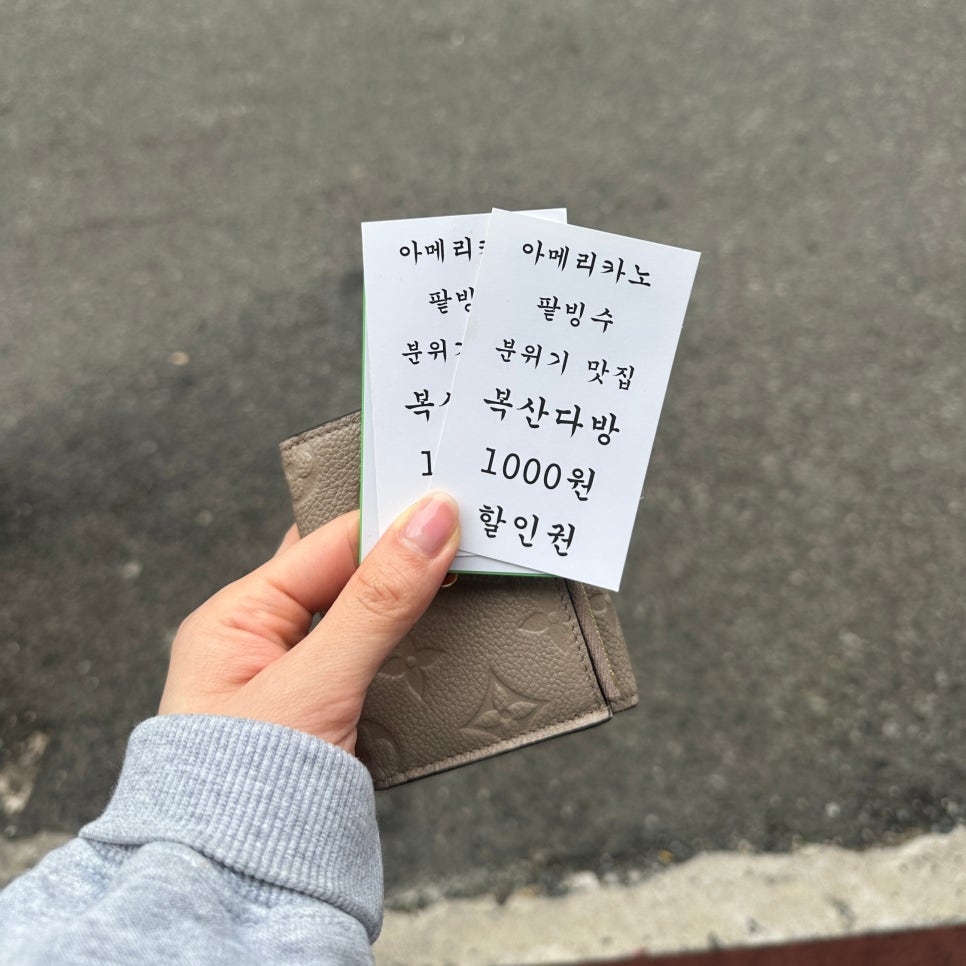 아메리
팥빙
분위기
복
1
아메리카노
팥빙수
분위기 맛집
복산다방
1000원
할인권